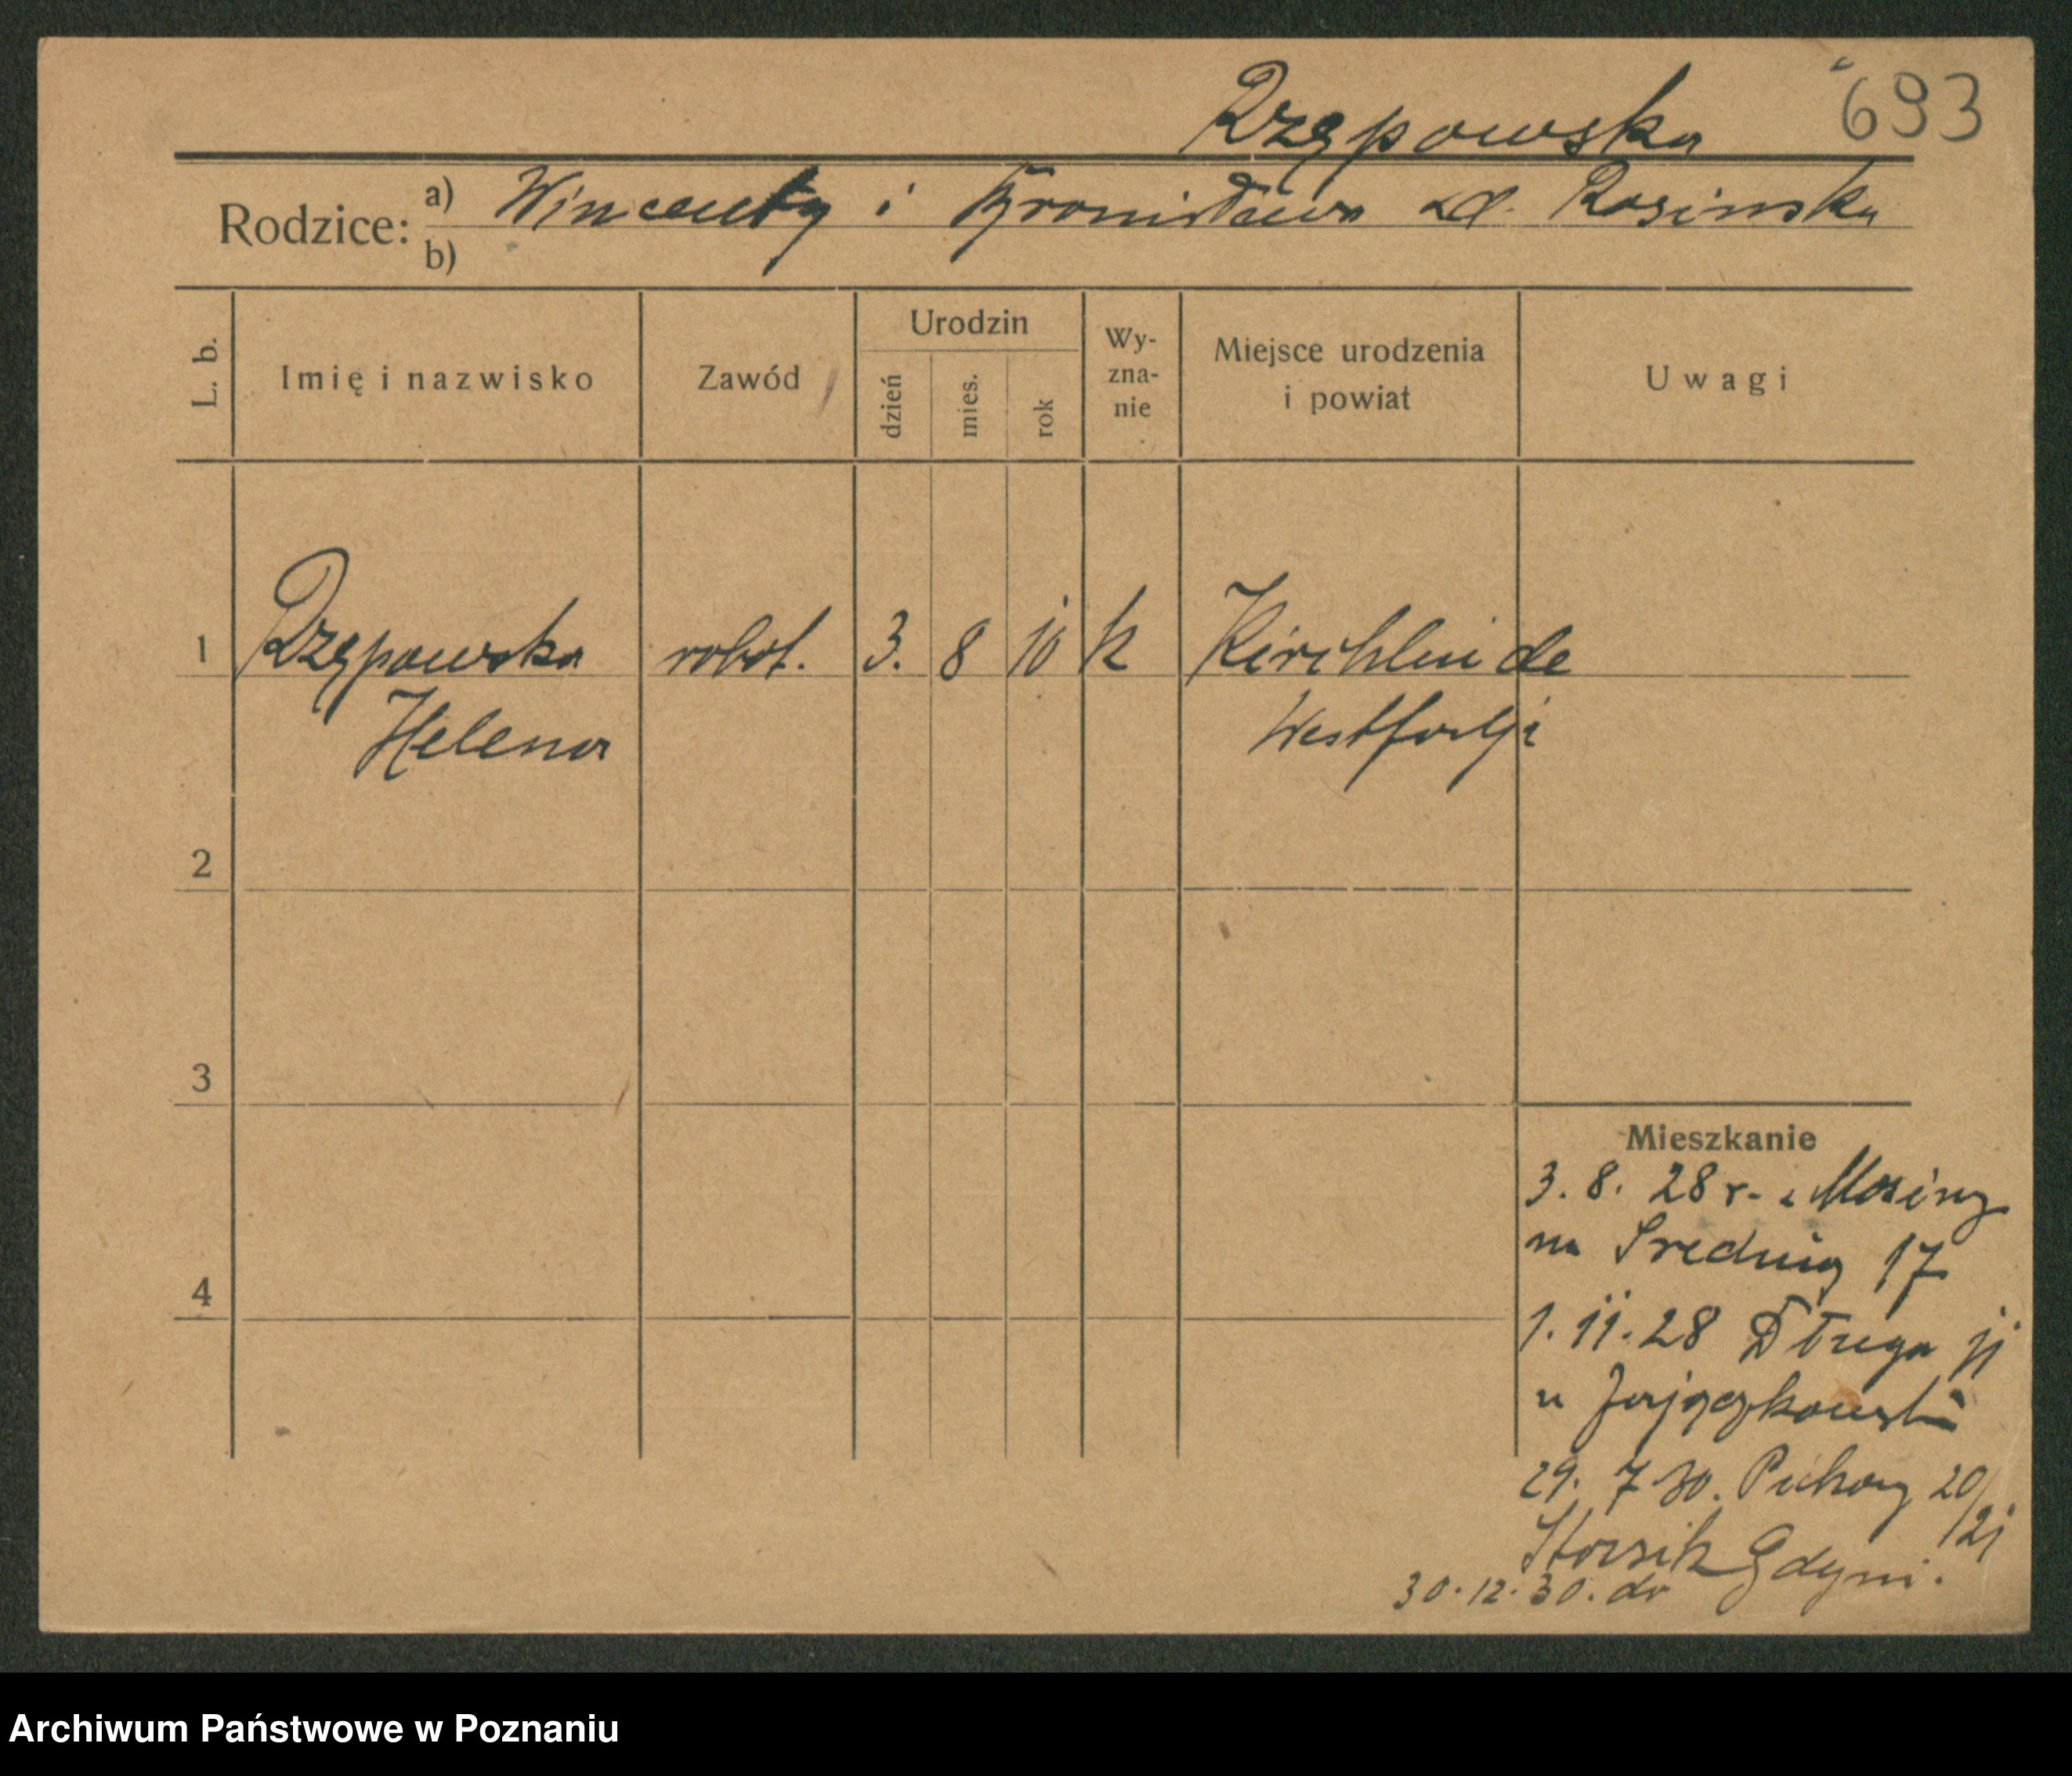 Rzępowska 693
Rodzice: a) Wincenty i Bronisława zd. Rosinska
b)
L. b. Imię i nazwisko Zawód Urodzin dzień mies. rok Wy-zna-nie Miejsce urodzenia i powiat Uwagi
1 Rzępowska robot. 3. 8 10 k Kirchlinde
Helena Westfalji
2
3
4
Mieszkanie
3. 8. 28 r. z Mosiny
na Srednią 17
1. 11. 28 Długa 11
u
29. 7 30. 20/21
30. 12. 30. do Gdyni.
Archiwum Państwowe w Poznaniu